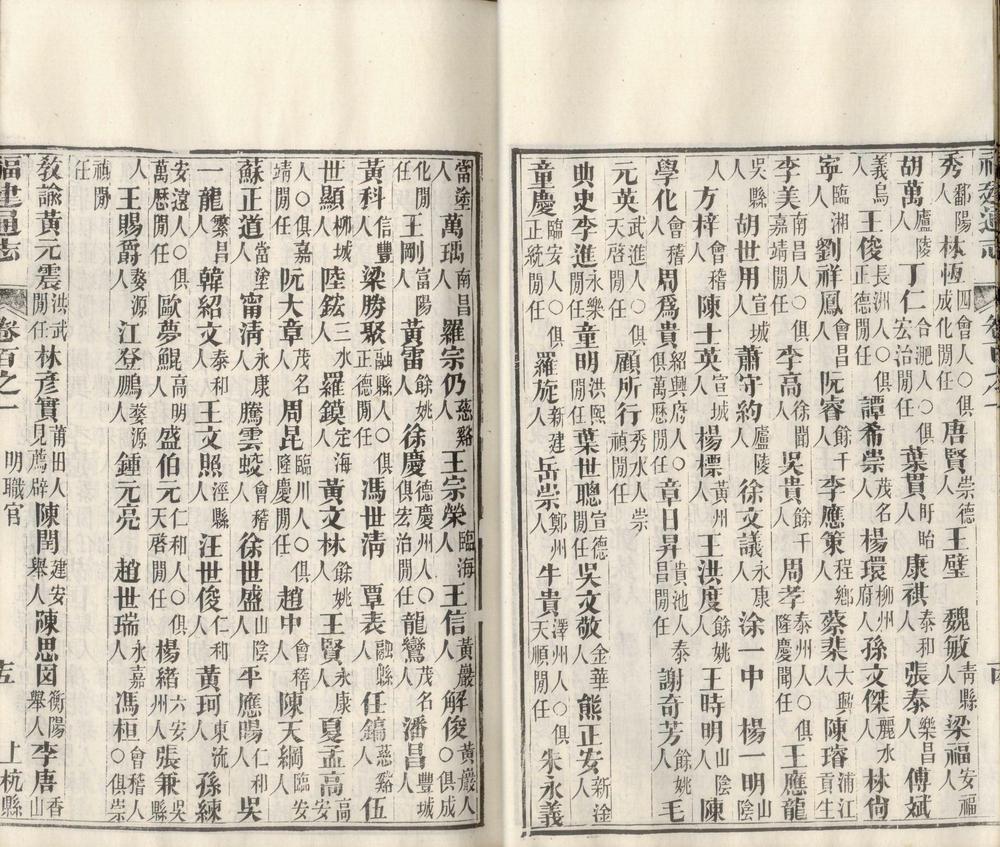 福建通志 卷百之一
秀鄱陽人林恆四會人○俱成化閒任唐賢崇德人王璧 魏敏青縣人梁福安福人
胡萬廬陵人丁仁合淝人○俱宏治閒任葉貫盱眙人康祺泰和人張泰樂昌人傅斌
義烏人王俊長洲人○俱正德閒任譚希崇茂名人楊環柳州府人孫文傑麗水人林尙
寧臨湘人劉祥鳳會昌人阮睿餘干人李應策程鄉人蔡棐大興人陳璿浦江貢生
李美南昌人○俱嘉靖閒任李高徐聞人吳貴餘干人周孝泰州人○俱隆慶閒任王應龍
吳縣人胡世用宣城人蕭守約廬陵人徐文議永康人涂一中 楊一明山陰
人方梓會稽人陳士英宣城人楊標黃州人王洪度餘姚人王時明山陰人陳
學化會稽人周爲貴紹興府人○俱萬歷閒任章日昇貴池人泰昌閒任謝奇芳餘姚人毛
元英武進人○俱天啓閒任顧所行秀水人崇禎閒任
典史李進永樂閒任童明洪熙閒任葉世聰宣德閒任吳文敬金華人熊正安新淦人
童慶臨安人○俱正統閒任羅旋新建人岳崇鄭州人牛貴澤州人○俱天順閒任朱永義
當塗人萬瑀南昌人羅宗仍慈谿人王宗榮臨海人王信黃巖人解俊黃巖人○俱成
化閒任王剛富陽人黃雷餘姚人徐慶德慶州人○俱宏治閒任龍鸞茂名人潘昌豐城人
黃科信豐人梁勝聚融縣人○俱正德閒任馮世淸 覃表融縣人任鎬慈谿人伍
世顯柳城人陸鋐三水人羅鏌定海人黃文林餘姚人王賢永康人夏孟高高安
人○俱嘉靖閒任阮大章茂名人周昆臨川人○俱隆慶閒任趙中會稽人陳天綱臨安人
蘇正道當塗人甯淸永康人騰雲蛟會稽人徐世盛山陰人平應暘仁和人吳
一龍繁昌人韓紹文泰和人王文照涇縣人汪世俊仁和人黃珂東流人孫練
安遠人○俱萬歷閒任歐夢鯤高明人盛伯元仁和人○俱天啓閒任楊緒六安州人張兼吳縣
人王賜爵婺源人江登鵬婺源人鍾元亮 趙世瑞永嘉人馮桓會稽人○俱崇
禎閒任
敎諭黃元震洪武閒任林彥實莆田人見薦辟陳閏建安舉人陳思図衡陽舉人李唐香山
福建通志 卷百之一 明職官 五 上杭縣